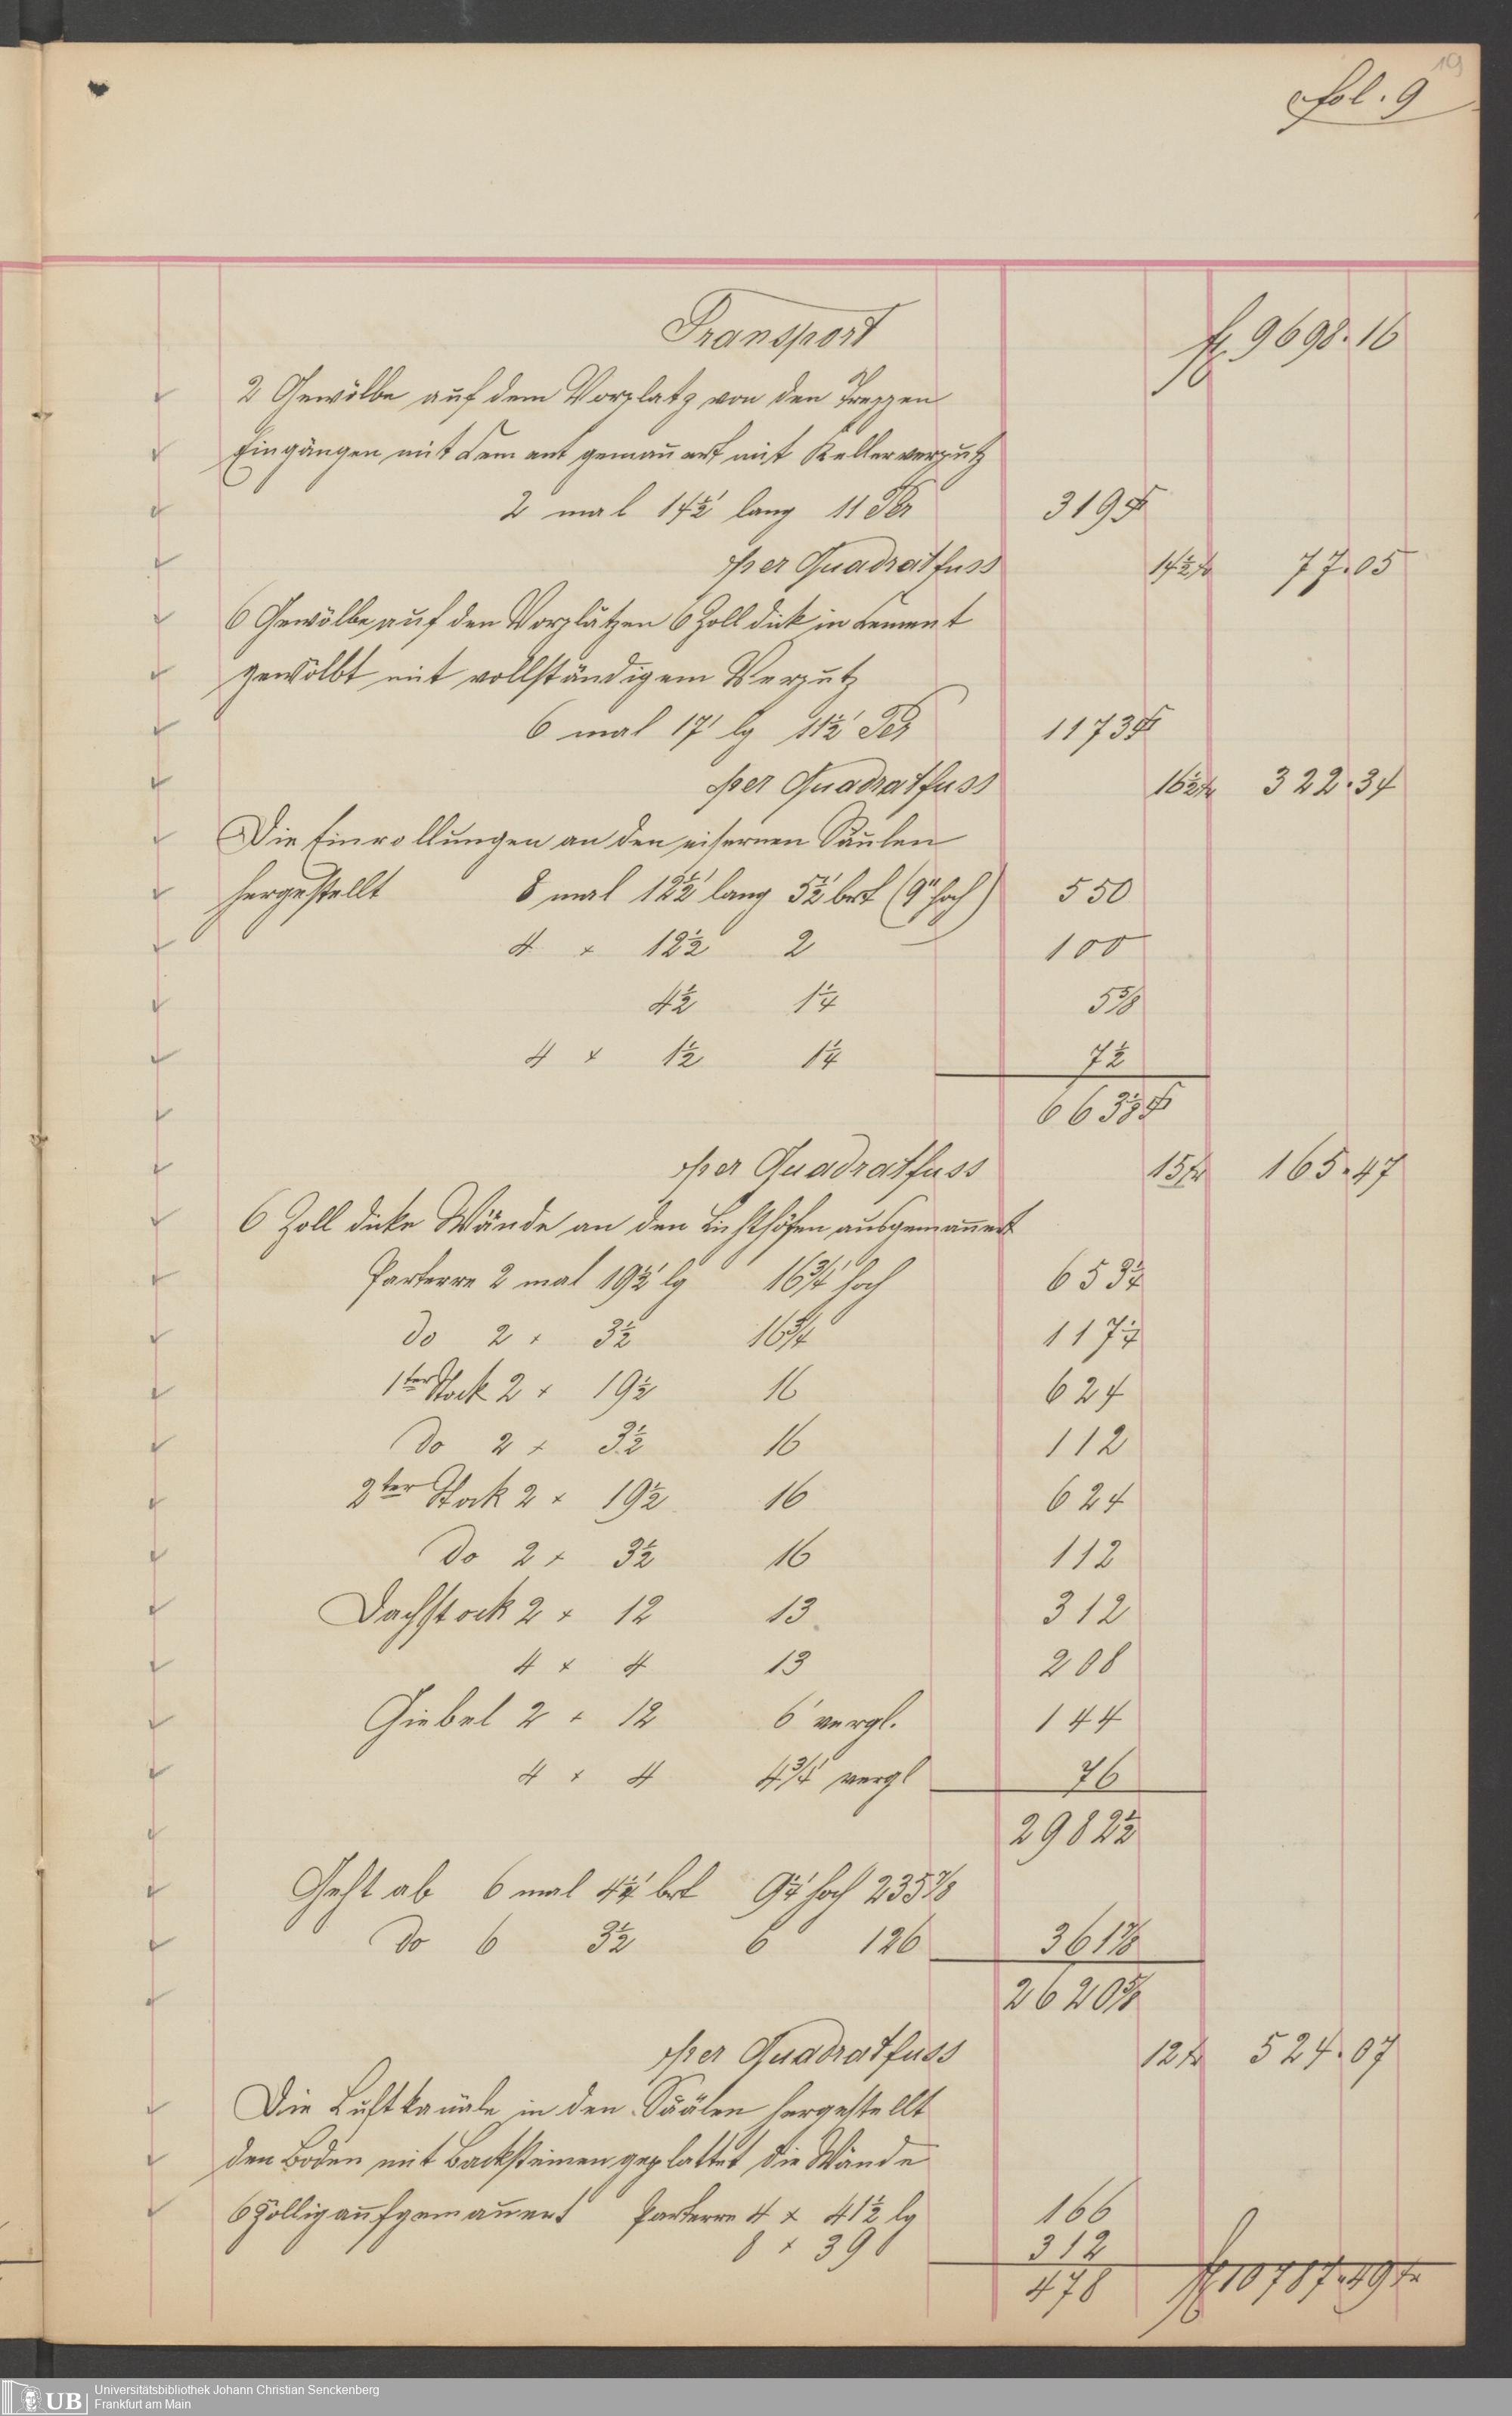 19
fol. 9
Transport fl. 9698.16
2 Gewölbe auf dem Vorplatz von den Treppen
Eingängen mit Cement gemauert mit Kellerverputz
2 mal 14½' lang 11 319
per Quadratfuss 14½ kr 77.05
6 Gewölbe auf den Vorplätzen 6 Zoll dick in Cement
gewölbt mit vollständigem Verputz
6 mal 17' lg 11½' 1173
per Quadratfuss 16½ kr 322.34
Die Einrollungen an den eisernen Säulen
hergestellt 8 mal 12½' lang 5½' brt (9" hoch) 550
4 × 12½ 2 100
4½ 1¼ 5⅝
4 × 1½ 1¼ 7½
663⅛
per Quadratfuss 15 kr 165.47
6 Zoll dicke Wände an den Lichthöfen ausgemauert
Parterre 2 mal 19½' lg 16¾' hoch 653¼
do 2 × 3½ 16¾ 117¼
1ter Stock 2 × 19½ 16 624
do 2 × 3½ 16 112
2ter Stock 2 × 19½ 16 624
do 2 × 3½ 16 112
Dachstock 2 × 12 13 312
4 × 4 13 208
Giebel 2 × 12 6' vergl. 144
4 × 4 4¾' vergl 76
2982½
Geht ab 6 mal 4¼' brt 9¼' hoch 235⅞
do 6 3½ 6 126 361⅞
2620⅝
per Quadratfuss 12 kr 524.07
Die Luftkanäle in den Säälen hergestellt
den Boden mit Backsteinen geplattet die Wände
6 Zöllig aufgemauert Parterre 4 × 41½ lg 166
8 × 39 312
478 fl 10787.49 kr
UB
Universitätsbibliothek Johann Christian Senckenberg
Frankfurt am Main